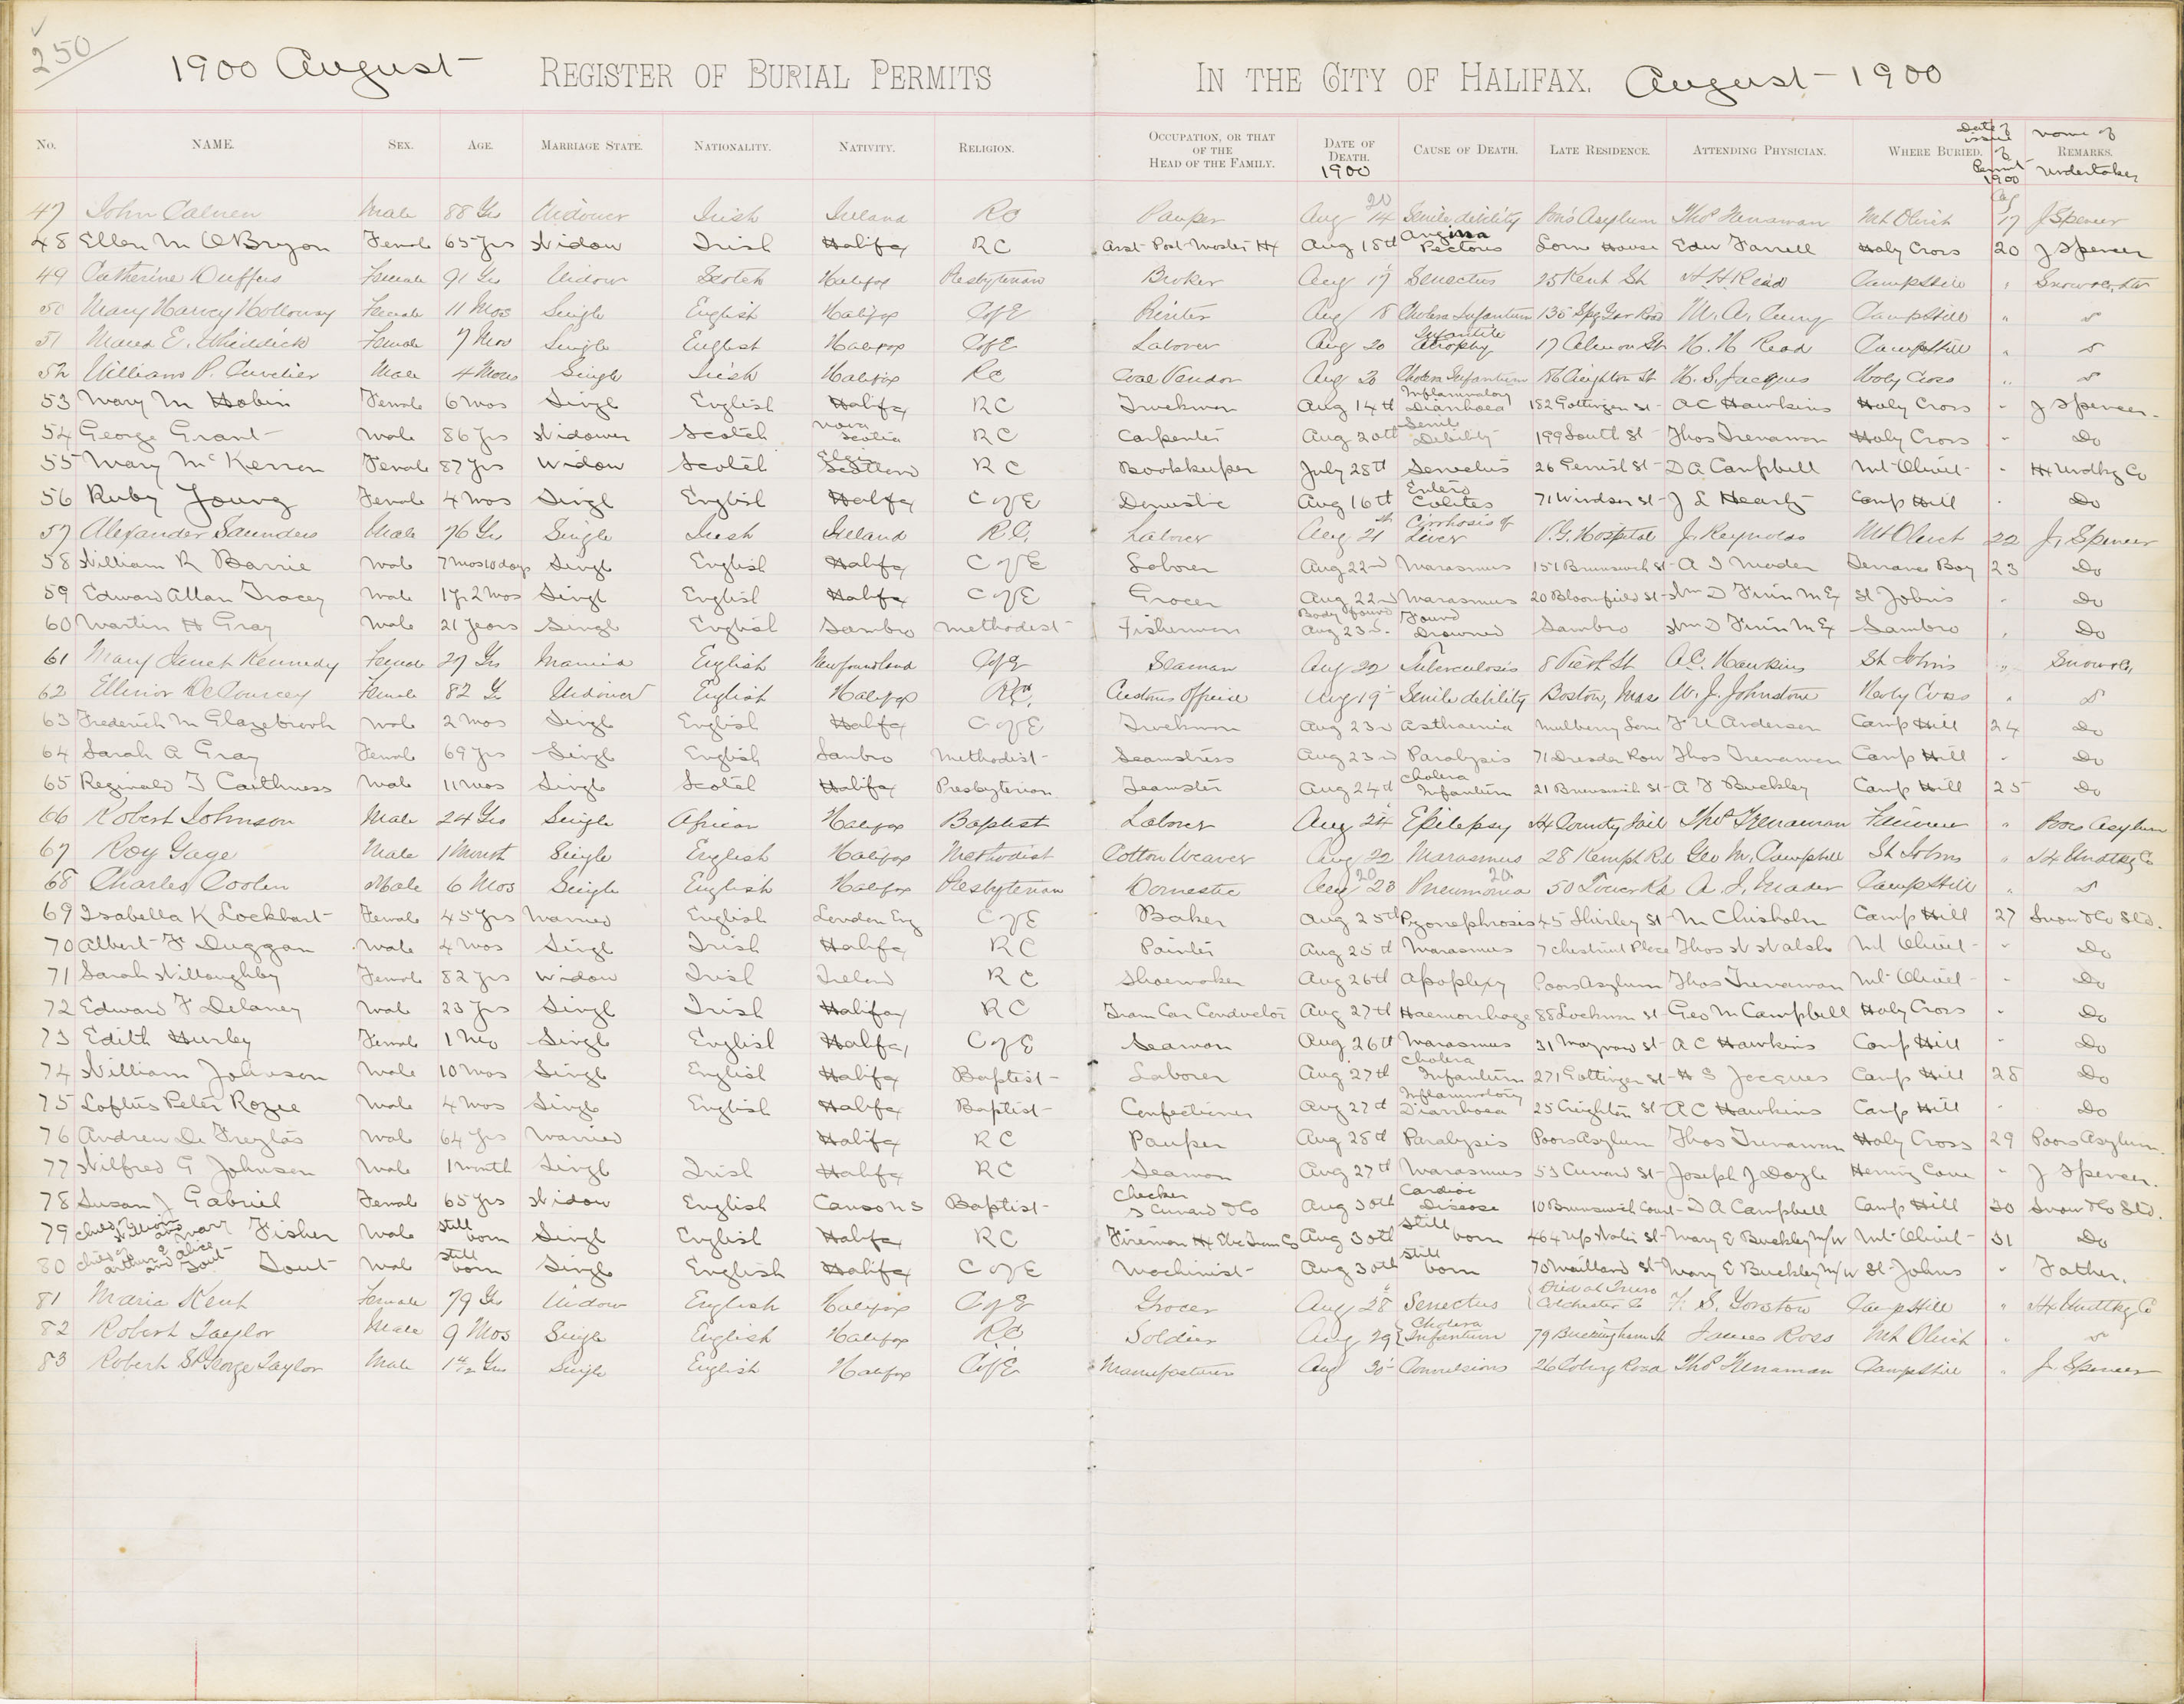 250
1900 August REGISTER OF BURIAL PERMITS IN THE CITY OF HALIFAX. August - 1900
No. NAME. SEX. AGE. MARRIAGE STATE. NATIONALITY. NATIVITY. RELIGION. OCCUPATION, OR THAT OF THE HEAD OF THE FAMILY. DATE OF DEATH. 1900 CAUSE OF DEATH. LATE RESIDENCE. ATTENDING PHYSICIAN. WHERE BURIED. Date of issue of Permit 1900 Name of REMARKS. Undertaker
47 John Male 88 Yrs Widower Irish Ireland RC Pauper Aug 14 Senile debility Poor's Asylum Thos Trenaman Mt Olivet 17 J Spencer
48 Ellen M O'Bryon Female 65 yrs Widow Irish Halifax RC Asst Post Master Hx Aug 18th Angina Pectoris Lorne House Edw Farrell Holy Cross 20 J Spencer
49 Catherine Duffus Female 91 Yrs Widow Scotch Halifax Presbyterian Broker Aug 17 Senectus 25 Kent St H H Read Camp Hill " Snow & Co, Ltd
50 Mary Harvey Holloway Female 11 Mos Single English Halifax C of E Printer Aug 18 Cholera Infantum 135 Spg Gar Road Camp Hill " Do
51 E. Female 7 Mos Single English Halifax C of E Laborer Aug 20 Infantile Atrophy 17 Almon St H. H Read Camp Hill " Do
52 William P. Cuvelier Male 4 Mos Single Irish Halifax RC Coal Vendor Aug 20 Cholera Infantum Creighton St H. S. Jacques Holy Cross " Do
53 Mary M Hobin Female 6 mos Single English Halifax RC Truckman Aug 14th Inflammatory Diarrhoea 182 Gottingen St A C Hawkins Holy Cross " J Spencer
54 George Grant Male 86 yrs Widower Scotch Nova Scotia RC Carpenter Aug 20th Senile Debility 199 South St Thos Trenaman Holy Cross " Do
55 Mary McKerron Female 87 yrs Widow Scotch Elgin Scotland RC Bookkeeper July 28th Senectus 26 Gerrish St D A Campbell Mt Olivet " Hx Undtkg Co
56 Ruby Young Female 4 mos Single English Halifax C of E Domestic Aug 16th Entero Colites 71 Windsor St J L Hearty Camp Hill " Do
57 Alexander Saunders Male 76 Yrs Single Irish Ireland R.C. Laborer Aug 21st Cirrhosis of Liver V.G. Hospital J. Reynolds Mt Olivet 22 J. Spencer
58 William R Barrie Male 7 mos 10 days Single English Halifax C of E Laborer Aug 22nd Marasmus 151 Brunswick St A I Mader Terrance Bay 23 Do
59 Edward Allan Tracey Male 1 yr 2 mos Single English Halifax C of E Grocer Aug 22nd Marasmus 20 Bloomfield St Wm D Finn M Ex St Johns " Do
60 Martin H Gray Male 21 years Single English Sambro Methodist Fisherman Body found Aug 23rd Found Drowned Sambro Wm D Finn M Ex Sambro " Do
61 Mary Janet Kennedy Female 27 Yrs Married English Newfoundland C of E Seaman Aug 22 Tuberculosis 8 St A.C. Hawkins St John's " Snow & Co,
62 Ellinor DeCourcey Female 82 Y Widowed English Halifax R.C. Customs Officer Aug 19 Senile debility Boston, Mass W. J. Johnstone Holy Cross " Do
63 Frederick M Glazebrook Male 2 mos Single English Halifax C of E Truckman Aug 23rd Asthaenia Mulberry Lane F U Anderson Camp Hill 24 Do
64 Sarah A Gray Female 69 yrs Single English Sambro Methodist Seamstress Aug 23rd Paralysis 71 Dresden Row Thos Trenaman Camp Hill " Do
65 Reginald T Caithness Male 11 mos Single Scotch Halifax Presbyterian Teamster Aug 24th Cholera Infantum 21 Brunswick St A F Buckley Camp Hill 25 Do
66 Robert Johnson Male 24 Yrs Single African Halifax Baptist Laborer Aug 24 Epilepsy Hx County Jail Thos Trenaman " Poors Asylum
67 Roy Gage Male 1 Month Single English Halifax Methodist Cotton Weaver Aug 22 Marasmus 28 Kempt Rd Geo M. Campbell St Johns " Hx Undtkg Co
68 Charles Coolen Male 6 Mos Single English Halifax Presbyterian Domestic Aug 23 Pneumonia 50 Tower Rd A. I. Mader Camp Hill " Do
69 Isabella K Lockhart Female 45 yrs Married English London Eng C of E Baker Aug 25th Pyonephrosis 45 Shirley St M Chisholm Camp Hill 27 Snow & Co Ltd.
70 Albert F Duggan Male 4 mos Single Irish Halifax RC Painter Aug 25th Marasmus 7 Chestnut Place Thos W Walsh Mt Olivet " Do
71 Sarah Willoughby Female 82 yrs Widow Irish Ireland RC Shoemaker Aug 26th Apoplexy Poors Asylum Thos Trenaman Mt Olivet " Do
72 Edward F Delaney Male 23 yrs Single Irish Halifax RC Tram Car Conductor Aug 27th Haemorrhage 88 Lockman St Geo M Campbell Holy Cross " Do
73 Edith Hurley Female 1 Mo Single English Halifax C of E Seaman Aug 26th Marasmus 31 Maynard St A C Hawkins Camp Hill " Do
74 William Johnson Male 10 mos Single English Halifax Baptist Laborer Aug 27th Cholera Infantum 271 Gottingen St H S Jacques Camp Hill 28 Do
75 Loftus Peter Rozee Male 4 mos Single English Halifax Baptist Confectioner Aug 27th Inflammatory Diarrhoea 25 Creighton St A C Hawkins Camp Hill " Do
76 Andrew De Freylas Male 64 yrs Married Halifax RC Pauper Aug 28th Paralysis Poors Asylum Thos Trenaman Holy Cross 29 Poors Asylum
77 Wilfred G Johnson Male 1 month Single Irish Halifax RC Seaman Aug 27th Marasmus 53 Cunard St Joseph J Doyle Herring Cove " J Spencer.
78 Susan J Gabriel Female 65 yrs Widow English Canso N S Baptist Checker S Cunard & Co Aug 30th Cardiac Disease 10 Brunswick Court D A Campbell Camp Hill 30 Snow & Co Ltd.
79 child of William and Mary Fisher Male still born Single English Halifax RC Fireman Hx Elec Tram Co Aug 30th still born 464 Up Water St Mary E Buckley M/W Mt Olivet 31 Do
80 child of Arthur and Alice Tout Tout Male still born Single English Halifax C of E Machinist Aug 30th still born 70 Maitland St Mary E Buckley M/W St Johns " Father.
81 Maria Kent Female 79 Yrs Widow English Halifax C of E Grocer Aug 28 Senectus Died at Truro Colchester Co F. S. Yorston Camp Hill " Hx Undtkg Co
82 Robert Taylor Male 9 Mos Single English Halifax R.C Soldier Aug 29 Cholera Infantum 79 Buckingham St James Ross Mt Olivet " Do
83 Robert St George Taylor Male Yrs Single English Halifax C of E Manufacturer Aug 30 Convulsions 26 Coburg Road Thos Trenaman Camp Hill " J. Spencer